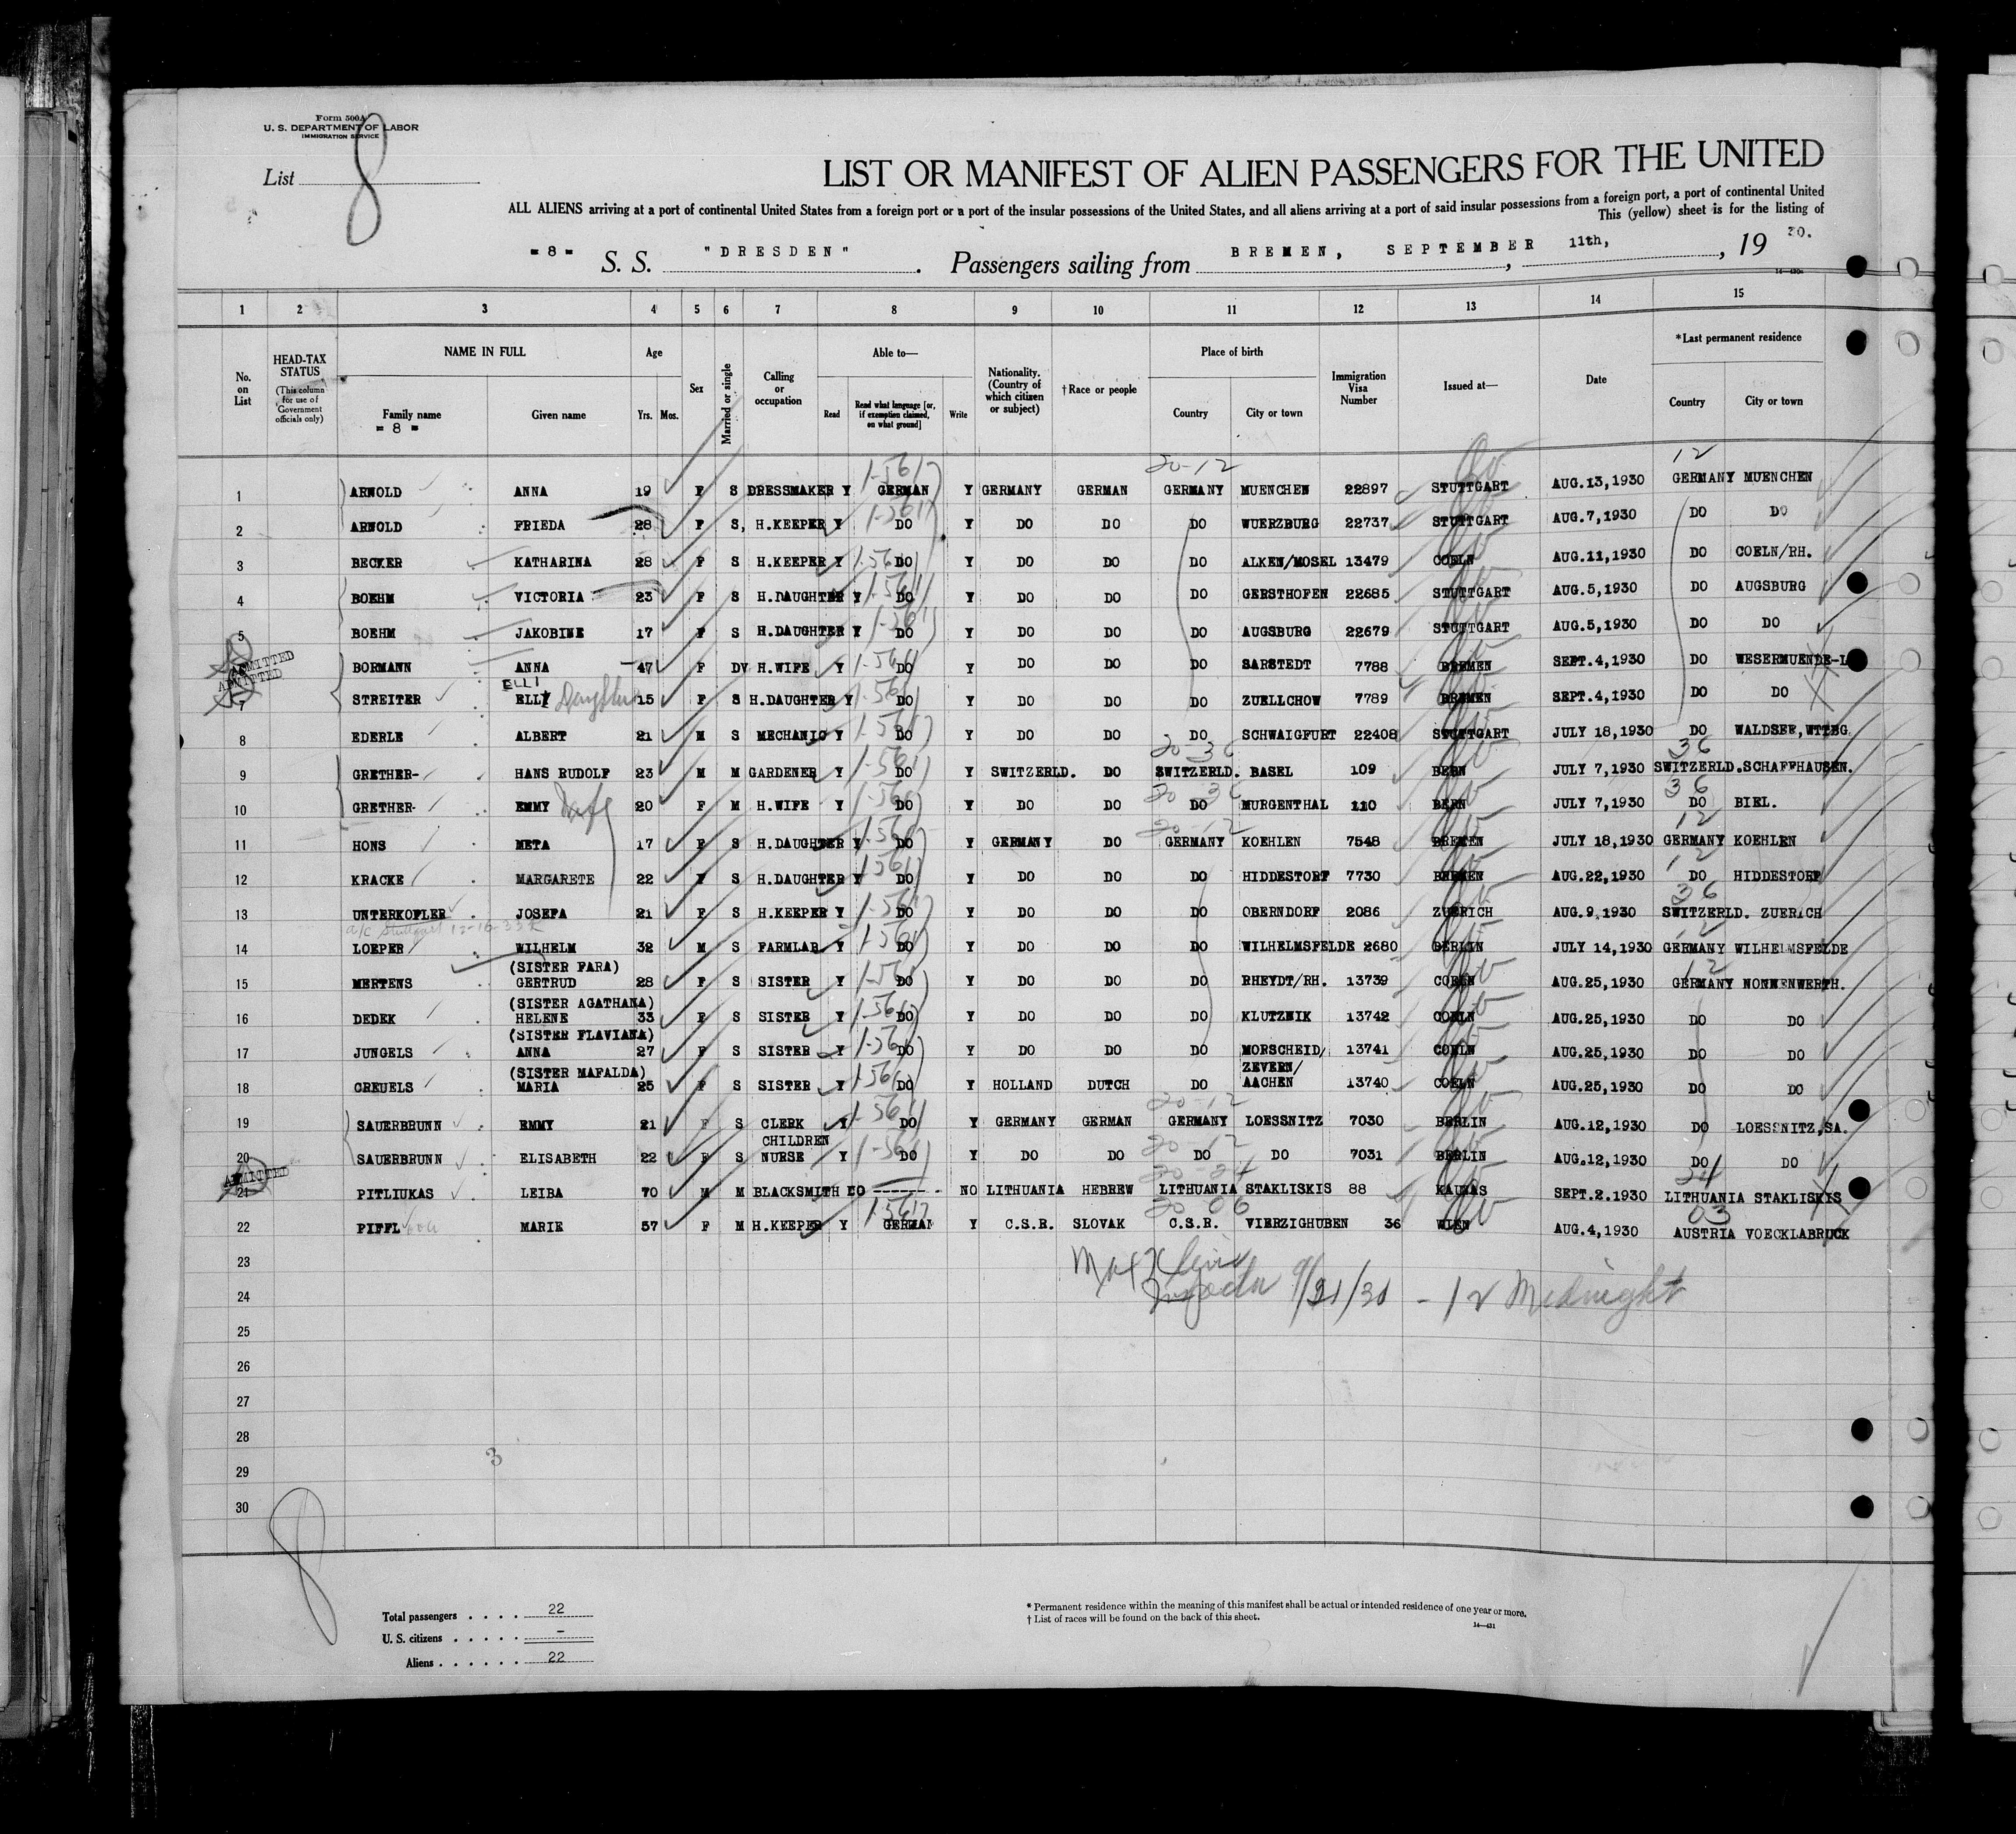 Form 500A
U. S. DEPARTMENT OF LABOR
IMMIGRATION SERVICE
List 8
LIST OR MANIFEST OF ALIEN PASSENGERS FOR THE UNITED
ALL ALIENS arriving at a port of continental United States from a foreign port or a port of the insular possessions of the United States, and all aliens arriving at a port of said insular possessions from a foreign port, a port of continental United
This (yellow) sheet is for the listing of
= 8 = S. S. "DRESDEN" . Passengers sailing from BREMEN, SEPTEMBER 11th, , 19 30.
14—430a
1 2 3 4 5 6 7 8 9 10 11 12 13 14 15
No. on List
HEAD-TAX STATUS
(This column for use of Government officials only)
NAME IN FULL
Family name
= 8 =
Given name
Age
Yrs. Mos.
Sex
Married or single
Calling or occupation
Able to—
Read
Read what language [or, if exemption claimed, on what ground]
Write
Nationality. (Country of which citizen or subject)
†Race or people
Place of birth
Country
City or town
Immigration Visa Number
Issued at—
Date
*Last permanent residence
Country
City or town
20-12 12
1 ARNOLD ANNA 19 F S DRESSMAKER Y GERMAN Y GERMANY GERMAN GERMANY MUENCHEN 22897 STUTTGART AUG.13,1930 GERMANY MUENCHEN
2 ARNOLD FRIEDA 28 F S, H.KEEPER Y DO Y DO DO DO WUERZBURG 22737 STUTTGART AUG.7,1930 DO DO
3 BECKER KATHARINA 28 F S H.KEEPER Y DO Y DO DO DO ALKEN/MOSEL 13479 COELN AUG.11,1930 DO COELN/RH.
4 BOEHM VICTORIA 23 F S H.DAUGHTER Y DO Y DO DO DO GERSTHOFEN 22685 STUTTGART AUG.5,1930 DO AUGSBURG
5 BOEHM JAKOBINE 17 F S H.DAUGHTER Y DO Y DO DO DO AUGSBURG 22679 STUTTGART AUG.5,1930 DO DO
ADMITTED BORMANN ANNA 47 F DV H.WIFE Y DO Y DO DO DO SARSTEDT 7788 BREMEN SEPT.4,1930 DO WESERMUENDE-L
ADMITTED
ELLI
7 STREITER ELLY Daughter 15 F S H.DAUGHTER Y DO Y DO DO DO ZUELLCHOW 7789 BREMEN SEPT.4,1930 DO DO
8 EDERLE ALBERT 21 M S MECHANIC Y DO Y DO DO DO SCHWAIGFURT 22408 STUTTGART JULY 18,1930 DO WALDSEE,WTTBG.
20-36 36
9 GRETHER- HANS RUDOLF 23 M M GARDENER Y DO Y SWITZERLD. DO SWITZERLD. BASEL 109 BERN JULY 7,1930 SWITZERLD.SCHAFFHAUSEN.
20 36 36
10 GRETHER- EMMY Wife 20 F M H.WIFE Y DO Y DO DO DO MURGENTHAL 110 BERN JULY 7,1930 DO BIEL.
20-12 12
11 HONS META 17 F S H.DAUGHTER Y DO Y GERMANY DO GERMANY KOEHLEN 7548 BREMEN JULY 18,1930 GERMANY KOEHLEN
12 KRACKE MARGARETE 22 F S H.DAUGHTER Y DO Y DO DO DO HIDDESTORF 7730 BREMEN AUG.22,1930 DO HIDDESTORF
36
13 UNTERKOFLER JOSEFA 21 F S H.KEEPER Y DO Y DO DO DO OBERNDORF 2086 ZUERICH AUG.9,1930 SWITZERLD. ZUERICH
a/c Stuttgart
14 LOEPER WILHELM 32 M S FARMLAB Y DO Y DO DO DO WILHELMSFELDE 2680 BERLIN JULY 14,1930 GERMANY WILHELMSFELDE
(SISTER FARA) 12
15 MERTENS GERTRUD 28 F S SISTER Y DO Y DO DO DO RHEYDT/RH. 13739 COELN AUG.25,1930 GERMANY NONNENWERTH.
(SISTER AGATHANA)
16 DEDEK HELENE 33 F S SISTER Y DO Y DO DO DO KLUTZNIK 13742 COELN AUG.25,1930 DO DO
(SISTER FLAVIANA)
17 JUNGELS ANNA 27 F S SISTER Y DO Y DO DO DO MORSCHEID/ 13741 COELN AUG.25,1930 DO DO
(SISTER MAFALDA) ZEVERN/
18 GREUELS MARIA 25 F S SISTER Y DO Y HOLLAND DUTCH DO AACHEN 13740 COELN AUG.25,1930 DO DO
20-12
19 SAUERBRUNN EMMY 21 F S CLERK Y DO Y GERMANY GERMAN GERMANY LOESSNITZ 7030 BERLIN AUG.12,1930 DO LOESSNITZ,SA.
CHILDREN 20-12
20 SAUERBRUNN ELISABETH 22 F S NURSE Y DO Y DO DO DO DO 7031 BERLIN AUG.12,1930 DO DO
ADMITTED 20-24 24
21 PITLIUKAS LEIBA 70 M M BLACKSMITH NO ------- NO LITHUANIA HEBREW LITHUANIA STAKLISKIS 88 KAUNAS SEPT.2.1930 LITHUANIA STAKLISKIS
20 06 03
22 PIFFL MARIE 57 F M H.KEEPER Y GERMAN Y C.S.R. SLOVAK C.S.R. VIERZIGHUBEN 36 WIEN AUG.4,1930 AUSTRIA VOECKLABRUCK
23
24 9/21/30 - 12 Midnight
25
26
27
28
29
30
3
8
Total passengers . . . . 22
U. S. citizens . . . . . -
Aliens . . . . . . 22
* Permanent residence within the meaning of this manifest shall be actual or intended residence of one year or more.
† List of races will be found on the back of this sheet.
14—431